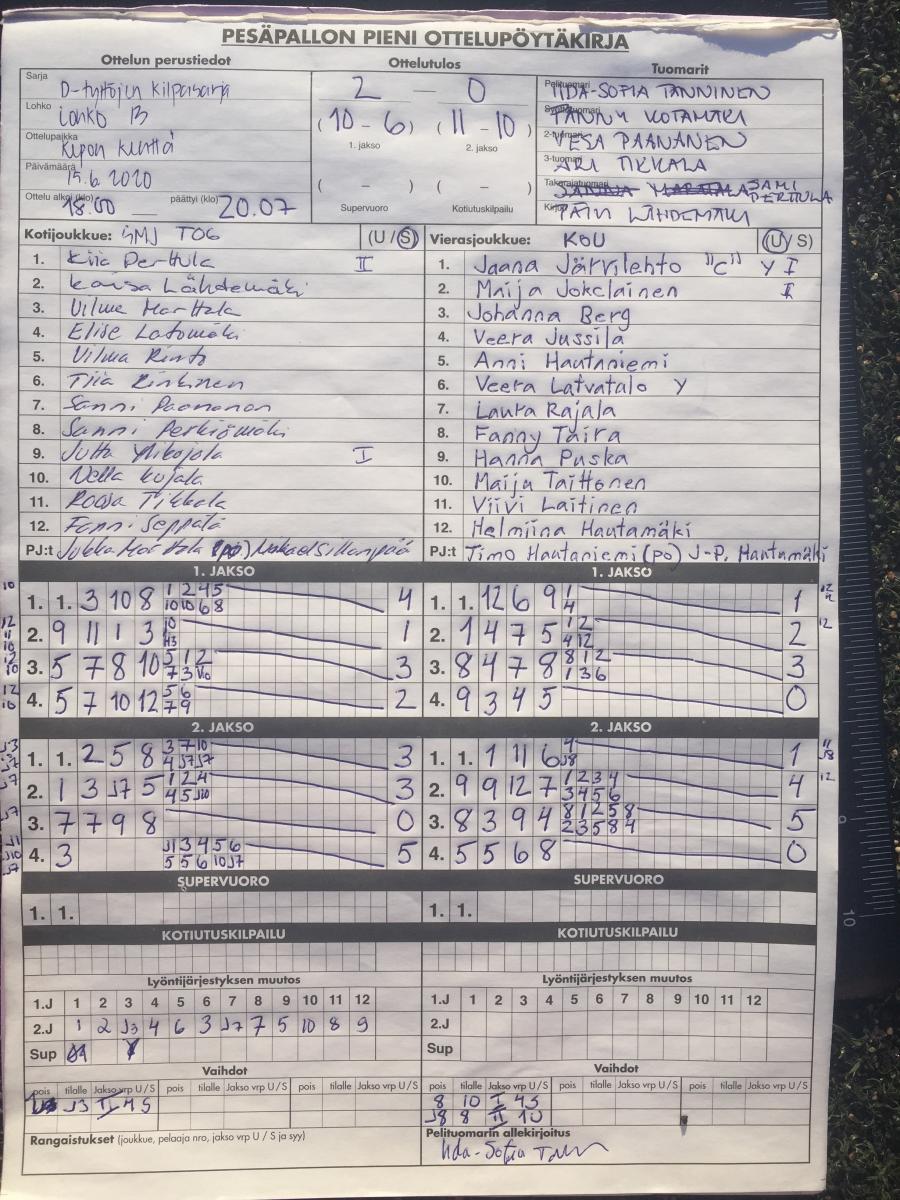 PESÄPALLON PIENI OTTELUPÖYTÄKIRJA
Ottelun perustiedot Ottelutulos Tuomarit
Sarja D-tyttöjen kilpasarja
Lohko Lohko B
Ottelupaikka Kupon kenttä
Päivämäärä 15.6 2020
Ottelu alkoi (klo) 18.00 päättyi (klo) 20.07
2 — 0
(10 - 6) (11 - 10)
1. jakso 2. jakso
( - ) ( - )
Supervuoro Kotiutuskilpailu
Pelituomari IIDA-SOFIA TANNINEN
FANNY KOTAMÄKI
2-tuomari VESA PAANANEN
3-tuomari ARI TIKKALA
Takarajatuomari SAMI PERTTULA
PÄIVI LÄHDEMÄKI
Kotijoukkue: SMJ TOG (U / S)
1. Kiia Perttula II
2. Kaisa Lähdemäki
3. Vilma Marttala
4. Elise Latomäki
5. Vilma Rinto
6. Tiia Rinkinen
7. Sanni Paananen
8. Sanni Perkiömäki
9. Jutta Ylikojola I
10. Nella Kujala
11. Roosa Tikkala
12. Fanni Seppälä
PJ:t Jukka Marttala (po)
Vierasjoukkue: KOU (U / S)
1. Jaana Järvilehto "C" Y I
2. Maija Jokelainen I
3. Johanna Berg
4. Veera Jussila
5. Anni Hautaniemi
6. Veera Latvatalo Y
7. Laura Rajala
8. Fanny Taira
9. Hanna Puska
10. Maiju Taittonen
11. Viivi Laitinen
12. Helmiina Hautamäki
PJ:t Timo Hautaniemi (po) J-P. Hautamäki
1. JAKSO
1. 1. 3 10 8 1 2 4 5 4
10 10 6 8
2. 9 11 1 3 10 1
3. 5 7 8 10 5 1 2 3
4. 5 7 10 12 5 6 2
7 9
1. JAKSO
1. 1. 12 6 9 1 1
4
2. 1 4 7 5 1 2 2
4 12
3. 8 4 7 8 8 1 2 3
1 3 6
4. 9 3 4 5 0
2. JAKSO
1. 1. 2 5 8 3 7 10 3
4 J7 J7
2. 1 3 J7 5 1 2 4 3
4 5 J10
3. 7 7 9 8 0
4. 3 J1 3 4 5 6 5
5 5 6 10 J7
2. JAKSO
1. 1. 1 11 6 4 1
J8
2. 9 9 12 7 1 2 3 4 4
3 4 5 6
3. 8 3 9 4 8 1 2 5 8 5
2 3 5 8 4
4. 5 5 6 8 0
SUPERVUORO
1. 1.
SUPERVUORO
1. 1.
KOTIUTUSKILPAILU
KOTIUTUSKILPAILU
Lyöntijärjestyksen muutos
1.J 1 2 3 4 5 6 7 8 9 10 11 12
2.J 1 2 J3 4 6 3 J7 7 5 10 8 9
Sup
Lyöntijärjestyksen muutos
1.J 1 2 3 4 5 6 7 8 9 10 11 12
2.J
Sup
Vaihdot
pois tilalle Jakso vrp U / S pois tilalle Jakso vrp U / S pois tilalle Jakso vrp U / S
J3 II 4 S
Vaihdot
pois tilalle Jakso vrp U / S pois tilalle Jakso vrp U / S pois tilalle Jakso vrp U / S
8 10 I 4S
J8 8 II 1U
Rangaistukset (joukkue, pelaaja nro, jakso vrp U / S ja syy)
Pelituomarin allekirjoitus
Iida-Sofia